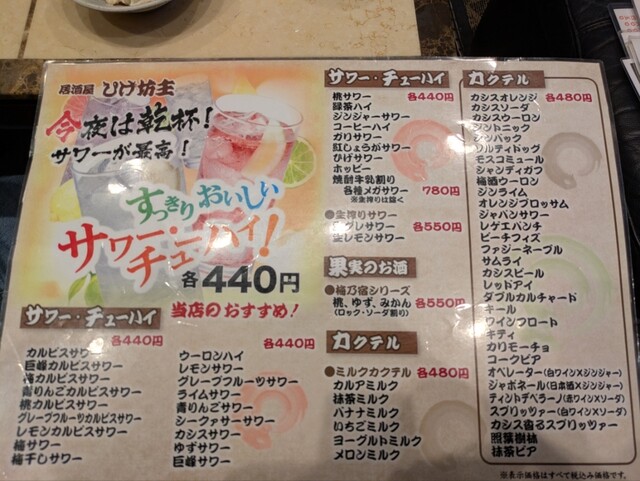 居酒屋 ひげ坊主
今夜は乾杯!
サワーが最高!
すっきりおいしい
サワー・
チューハイ!
各440円
当店のおすすめ!
サワー・チューハイ
各440円
カルピスサワー
巨峰カルピスサワー
梅カルピスサワー
青りんごカルピスサワー
桃カルピスサワー
グレープフルーツカルピスサワー
レモンカルピスサワー
梅サワー
梅干しサワー
各440円
ウーロンハイ
レモンサワー
グレープフルーツサワー
ライムサワー
青りんごサワー
シークァサーサワー
カシスサワー
ゆずサワー
巨峰サワー
サワー・チューハイ
桃サワー 各440円
緑茶ハイ
ジンジャーサワー
コーヒーハイ
ガリサワー
紅しょうがサワー
ひげサワー
ホッピー
焼酎牛乳割り
各種メガサワー 780円
※生搾りは抜く
●生搾りサワー
生グレサワー 各550円
生レモンサワー
果実のお酒
●梅乃宿シリーズ
桃、ゆず、みかん 各550円
(ロック・ソーダ割り)
カクテル
●ミルクカクテル 各480円
カルアミルク
抹茶ミルク
バナナミルク
いちごミルク
ヨーグルトミルク
メロンミルク
カクテル
カシスオレンジ 各480円
カシスソーダ
カシスウーロン
ジントニック
ジンバック
ソルティドッグ
モスコミュール
シャンディガフ
梅酒ウーロン
ジンライム
オレンジブロッサム
ジャパンサワー
レゲエパンチ
ピーチフィズ
ファジーネーブル
サムライ
カシスビール
レッドアイ
ダブルカルチャード
キール
ワインフロート
キティ
カリモーチョ
コークビア
オペレーター(白ワイン×ジンジャー)
ジャポネール(日本酒×ジンジャー)
ティントデベラーノ(赤ワイン×ソーダ)
スプリッツァー(白ワイン×ソーダ)
カシス香るスプリッツァー
照葉樹林
抹茶ビア
※表示価格はすべて税込み価格です。